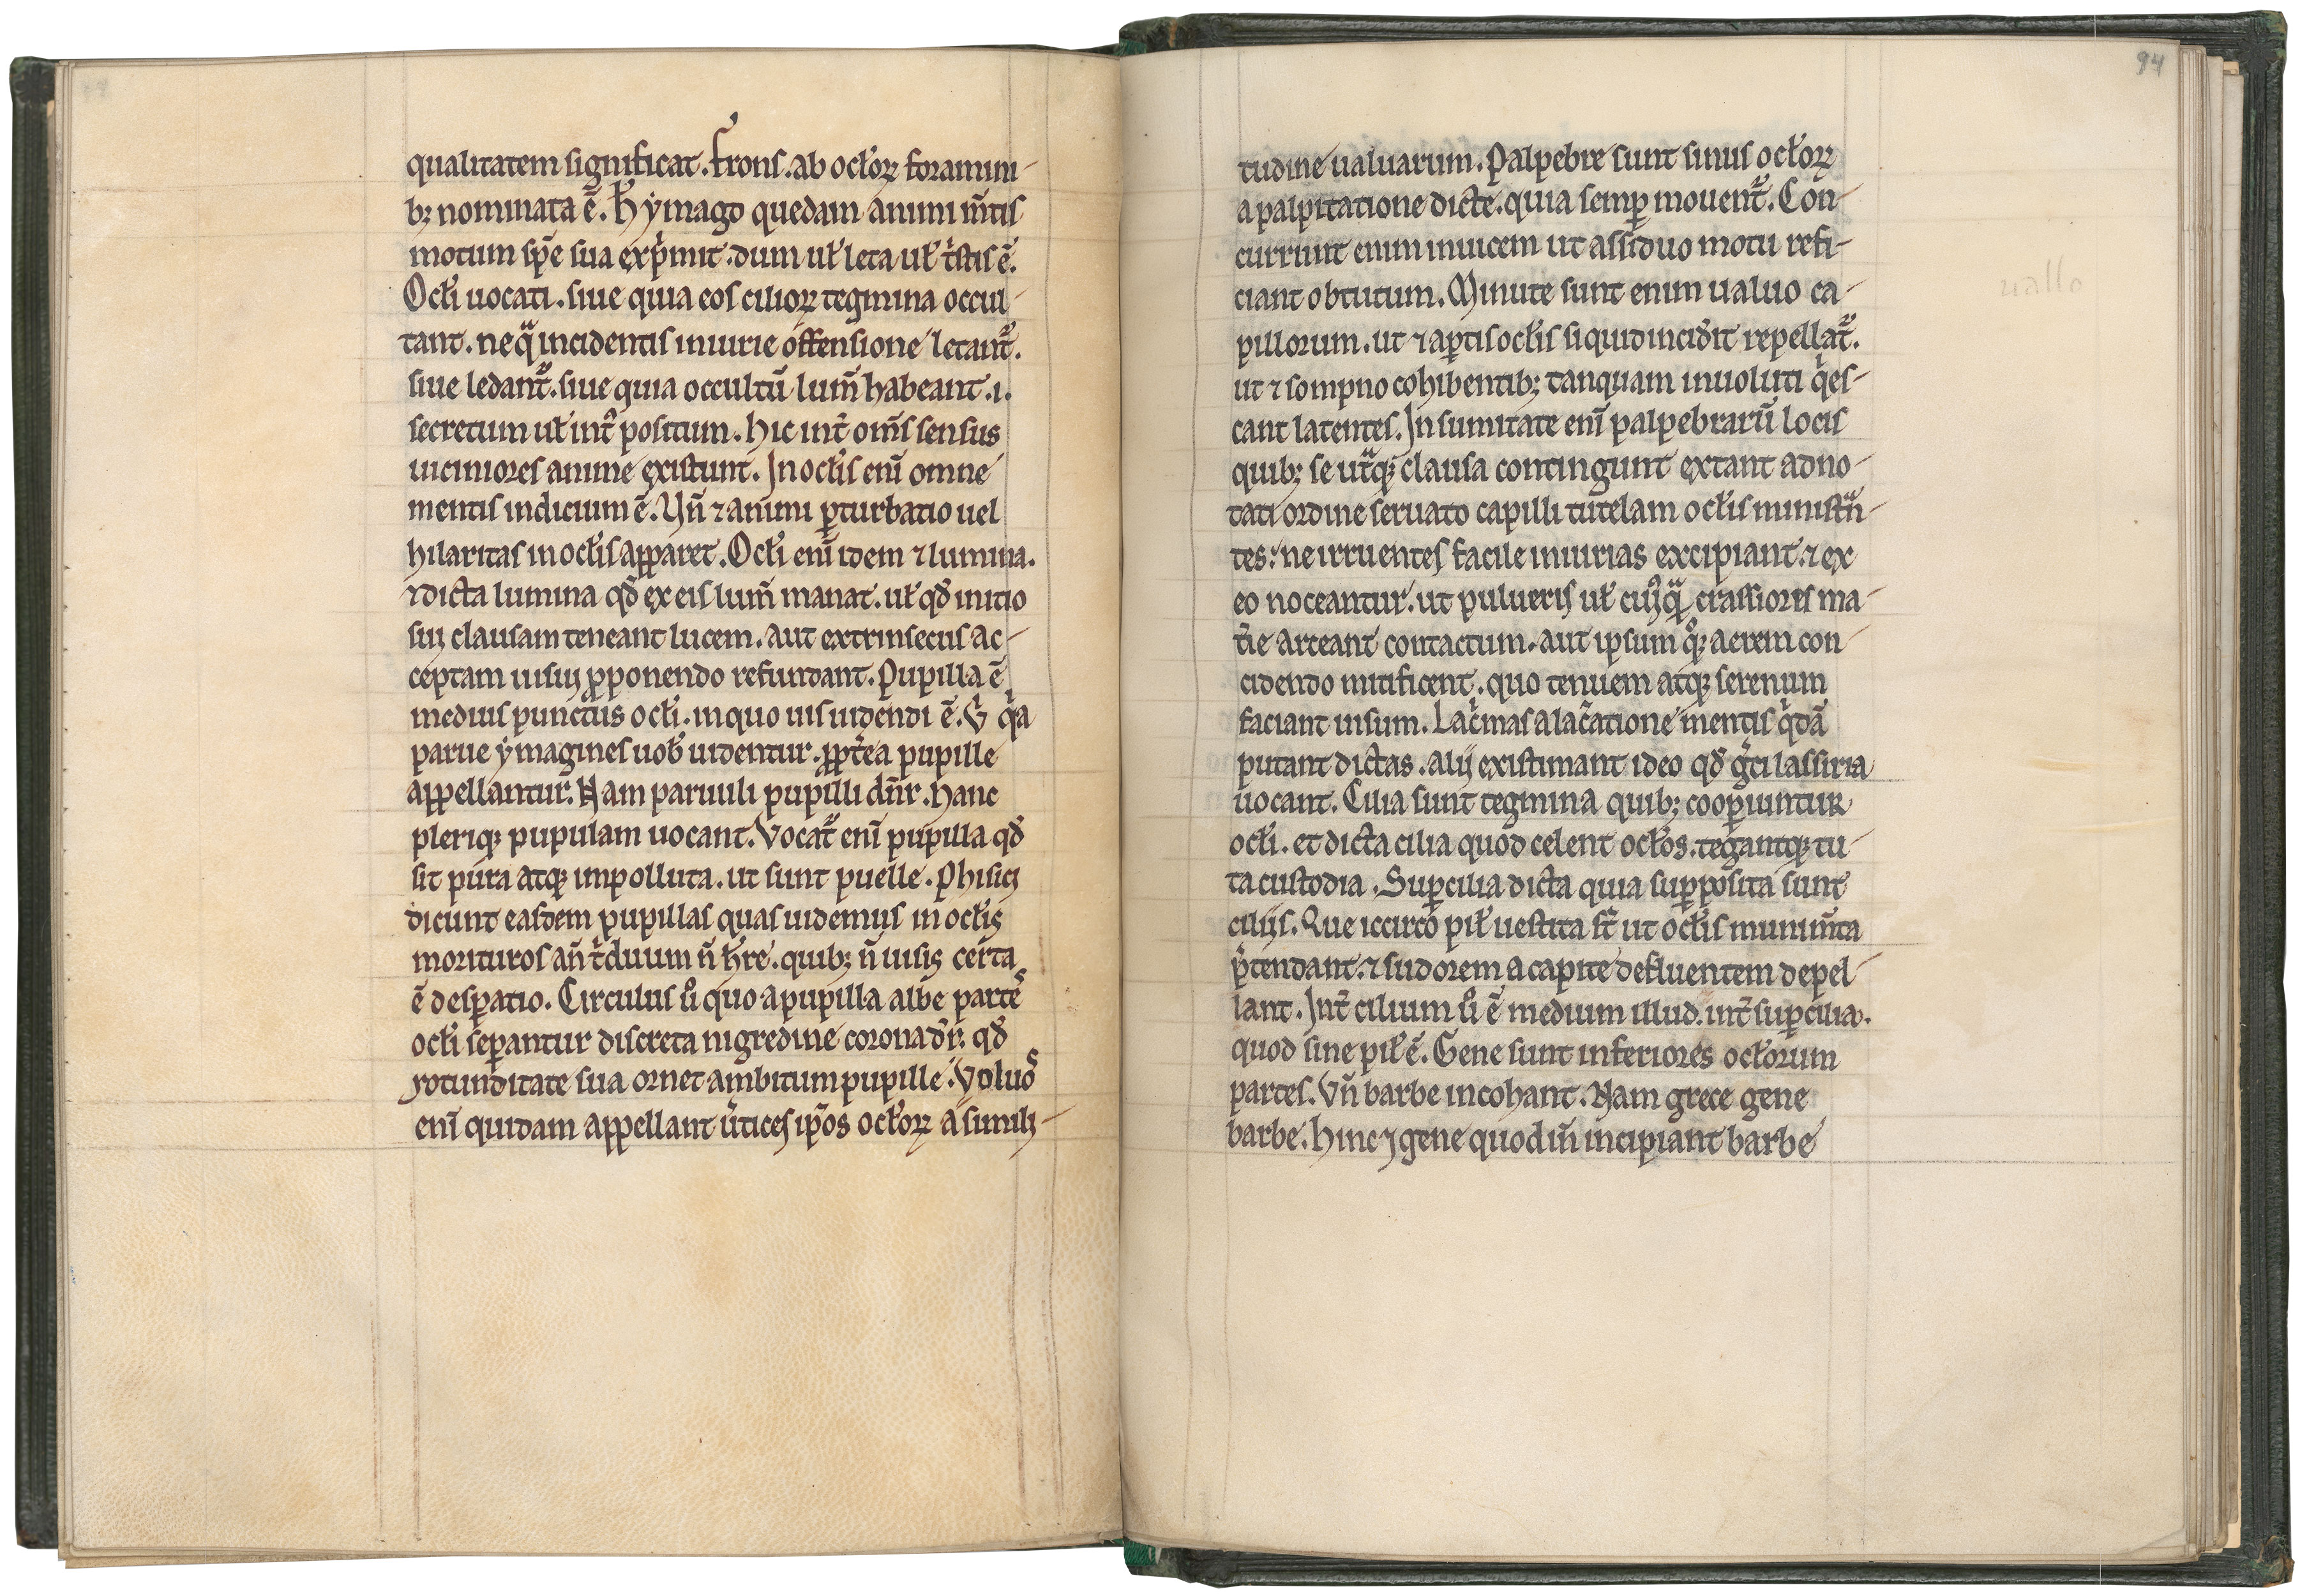 qualitatem significat. Frons. ab ocł'oꝝ foramini-
bꝫ nominata ē. h' ẏmago quedam animi m̄tis
motum sp̄e sua exp̍mit. dum uł leta uł t̍stis ē.
Ocł'i uocati. siue quia eos cilioꝝ tegmina occul-
tant. ne qͣ incidentis iniurie offensione letant᷑.
siue ledant᷑. siue quia occultū lum̄ habeant .i.
secretum uł int̄ positum. hic int̄ om̄s sensus
uiciniores anime existunt. In ocł'is enī omne
mentis indicium ē. Vn̄ ⁊ animi ꝑturbatio uel
hilaritas in ocł'is apparet. Ocł'i enī idem ⁊ lumina.
⁊ dicta lumina qd̄ ex eis lum̄ manat. uł qd̄ initio
sui clausam teneant lucem. aut extrinsecus ac-
ceptam uisui ꝓponendo refundant. Pupilla ē
medius punctus ocł'i. in quo uis uidendi ē. G̍ q̍a
parue ẏmagines nob̄ uidentur. ꝓpt̄ea pupille
appellantur. Nam paruuli pupilli dn̄r. Hanc
pleriqꝫ pupulam uocant. Vocat᷑ enī pupilla qd̄
sit pura atqꝫ impolluta. ut sunt puelle. Phisici
dicunt easdem pupillas quas uidemus in ocł'is
morituros an̄ t̍duum n̄ h̄re. quibꝫ n̄ uisis certa
ē desꝑatio. Circulus ů quo a pupilla albe partes
ocł'i seꝑantur discreta nigredine corona dr̄. qd̄
rotunditate sua ornet ambitum pupille. Voluos
enī quidam appellant u̍tices ip̄os ocł'oꝝ a simili-
94
tudine ualuarum. Palpebre sunt sinus ocł'oꝝ
a palpitatione dicte. quia semꝑ mouent᷑. Con-
currunt enim inuicem ut assiduo motu refi-
ciant obtutum. Minute sunt enim ualuo ca-
uallo
pillorum. ut ⁊ aꝑtis ocł'is si quid incid̍it repellat᷑.
ut ⁊ sompno cohibentibꝫ tanquam inuoluti q̍es-
cant latentes. In sumitate enī palpebrarū locis
quibꝫ se ut̍qꝫ clausa contingunt extant adno-
tati ordine seruato capilli tutelam ocł'is ministͣn-
tes. ne irruentes facile iniurias excipiant. ⁊ ex
eo noceantur. ut pulueris uł cuiꝰqͣ crassioris ma-
t̍ie arceant contactum. aut ipsum qͦꝫ aerem con-
cidendo mitificent. quo tenuem atqꝫ serenum
faciant uisum. Lac̍mas a lac̍atione mentis q̍dā
putant dictas. alij existimant ideo qd̄ g̍ci lassiria
uocant. Cilia sunt tegmina quibꝫ cooꝑiuntur
ocł'i. et dicta cilia quod celent ocł'os. tegantqꝫ tu-
ta custodia. Suꝑcilia dicta quia suꝑposita sunt
cilijs. Que iccirco pił uestita st̄ ut ocł'is munim̄ta
p̍tendant. ⁊ sudorem a capite defluentem depel-
lant. Int̄ cilium ů ē medium illud. int̄ suꝑcilia.
quod sine pił ē. Gene sunt inferiores ocł'orum
partes. Vn̄ barbe incohant. Nam grece gene
barbe. Hinc ⁊ gene quod in̄ incipiant barbe